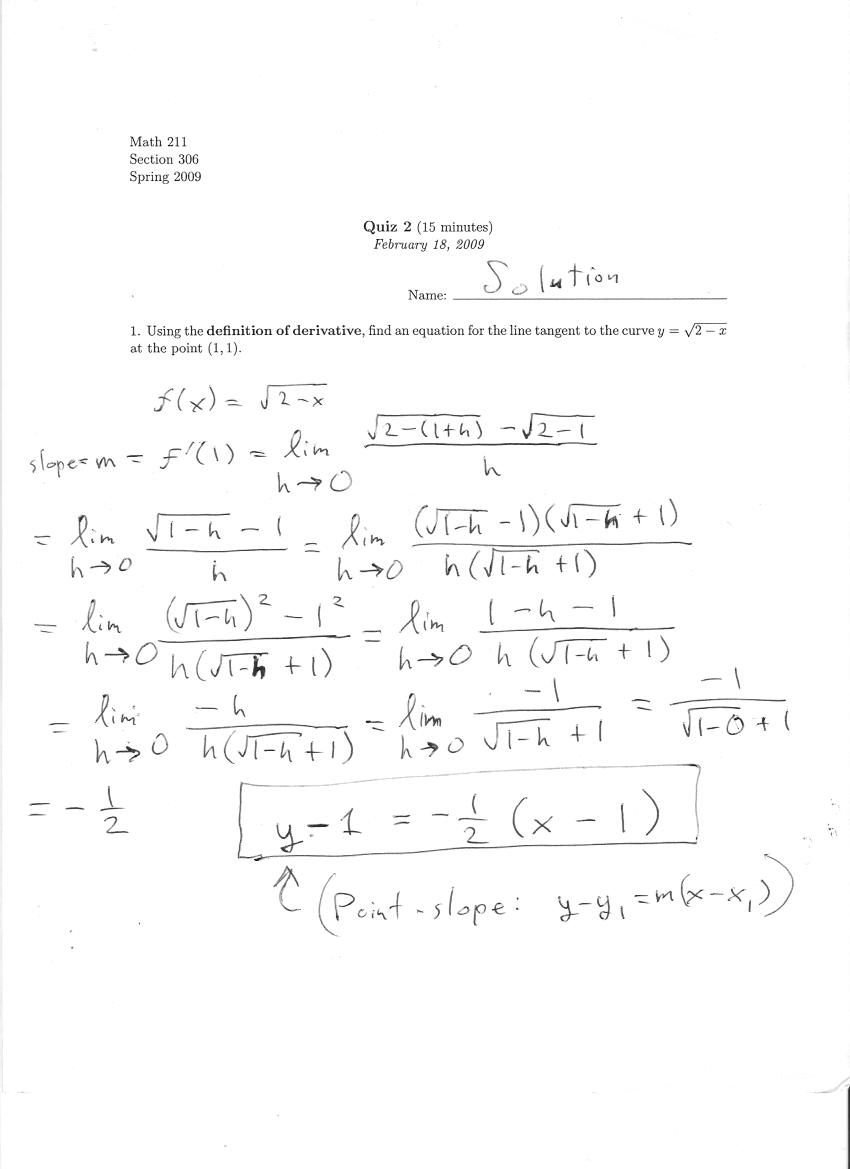 Math 211
Section 306
Spring 2009
Quiz 2 (15 minutes)
February 18, 2009
Name: Solution
1. Using the definition of derivative, find an equation for the line tangent to the curve y = √(2 − x)
at the point (1, 1).
f(x) = √(2−x)
slope = m = f'(1) = lim h→0 (√(2−(1+h)) − √(2−1)) / h
= lim h→0 (√(1−h) − 1) / h = lim h→0 (√(1−h) − 1)(√(1−h) + 1) / h(√(1−h) + 1)
= lim h→0 ((√(1−h))² − 1²) / h(√(1−h) + 1) = lim h→0 (1 − h − 1) / h(√(1−h) + 1)
= lim h→0 −h / h(√(1−h) + 1) = lim h→0 −1 / (√(1−h) + 1) = −1 / (√(1−0) + 1)
= − 1/2 y − 1 = − 1/2 (x − 1)
(Point-slope: y−y₁ = m(x−x₁))